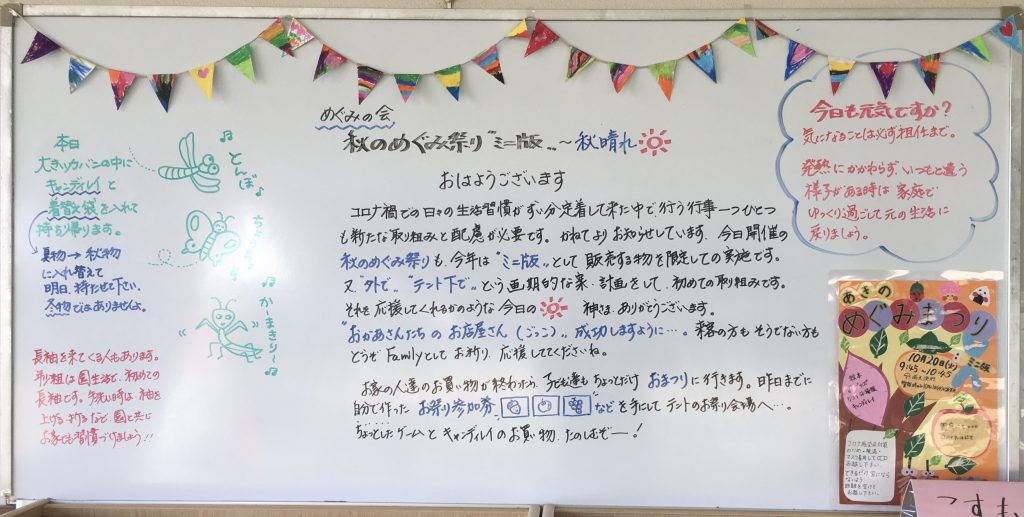 めぐみの会
秋のめぐみ祭り"ミニ版"～秋晴れ
おはようございます
コロナ禍での日々の生活習慣がずい分定着して来た中で、行う行事一つひとつ
も新たな取り組みと配慮が必要です。かねてよりお知らせしています、今日開催の
秋のめぐみ祭りも、今年は"ミニ版"として販売する物を限定しての実施です。
又、"外で""テント下で"という画期的な案、計画をして、初めての取り組みです。
それを応援してくれるかのような今日の 神さま、ありがとうございます。
"おかあさんたちのお店屋さん(ごっこ)"成功しますように…。来客の方もそうでない方も
どうぞFamilyとしてお祈り、応援してくださいね。
お家の人達のお買い物が終わったら、子ども達もちょっとだけおまつりに行きます。昨日までに
自分で作ったお祭り参加券 などを手にしてテントのお祭り会場へ…。
ちょっとしたゲームとキャンディレイのお買い物、たのしむぞー!
本日
大きいカバンの中に
キャンディレイと
着替え袋を入れて
持ち帰ります。
夏物→秋物
に入れ替えて
明日、持たせて下さい。
冬物ではありませんよ。
長袖を来てくる人もあります。
組は園生活で、初めての
長袖です。手洗い時は袖を
上げる、折るなど、園と共に
お家でも習慣づけましょう!!
とんぼ
ちょうちょう
かーまきりー
今日も元気ですか?
気になることは必ず担任まで。
発熱にかかわらず、いつもと違う
様子がある時は家庭で
ゆっくり過ごして元の生活に
戻りましょう。
あきの
めぐみまつり
ミニ版
10月20日(火)
9:45～10:45
コロナ感染症対策
マスク着用して
お越し下さい。
お越し下さい。
こすも